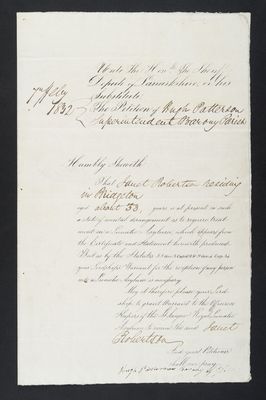 Unto the Honble. The Sheriff
Depute of Lanarkshire or his
Substitute
7 July
1832
The Petition of Hugh Patterson
Superintendent Barony Parish
Humbly Sheweth
That Janet Robertson residing
in Bridgeton
aged about 53 years is at present in such
a state of mental derangement as to require treat
ment in a Lunatic Asylum, which appears from
the Certificate and Statement herewith produced
That as by the Statutes
your Lordship's Warrant for the reception of any person
into a Lunatic Asylum is necessary
May it therefore please your Lord
ship to grant Warrant to the Officers or
Keepers of the Glasgow Royal Lunatic
Asylum to receive the said Janet
Robertson
And your Petitioner
shall ever pray
Hugh Patterson